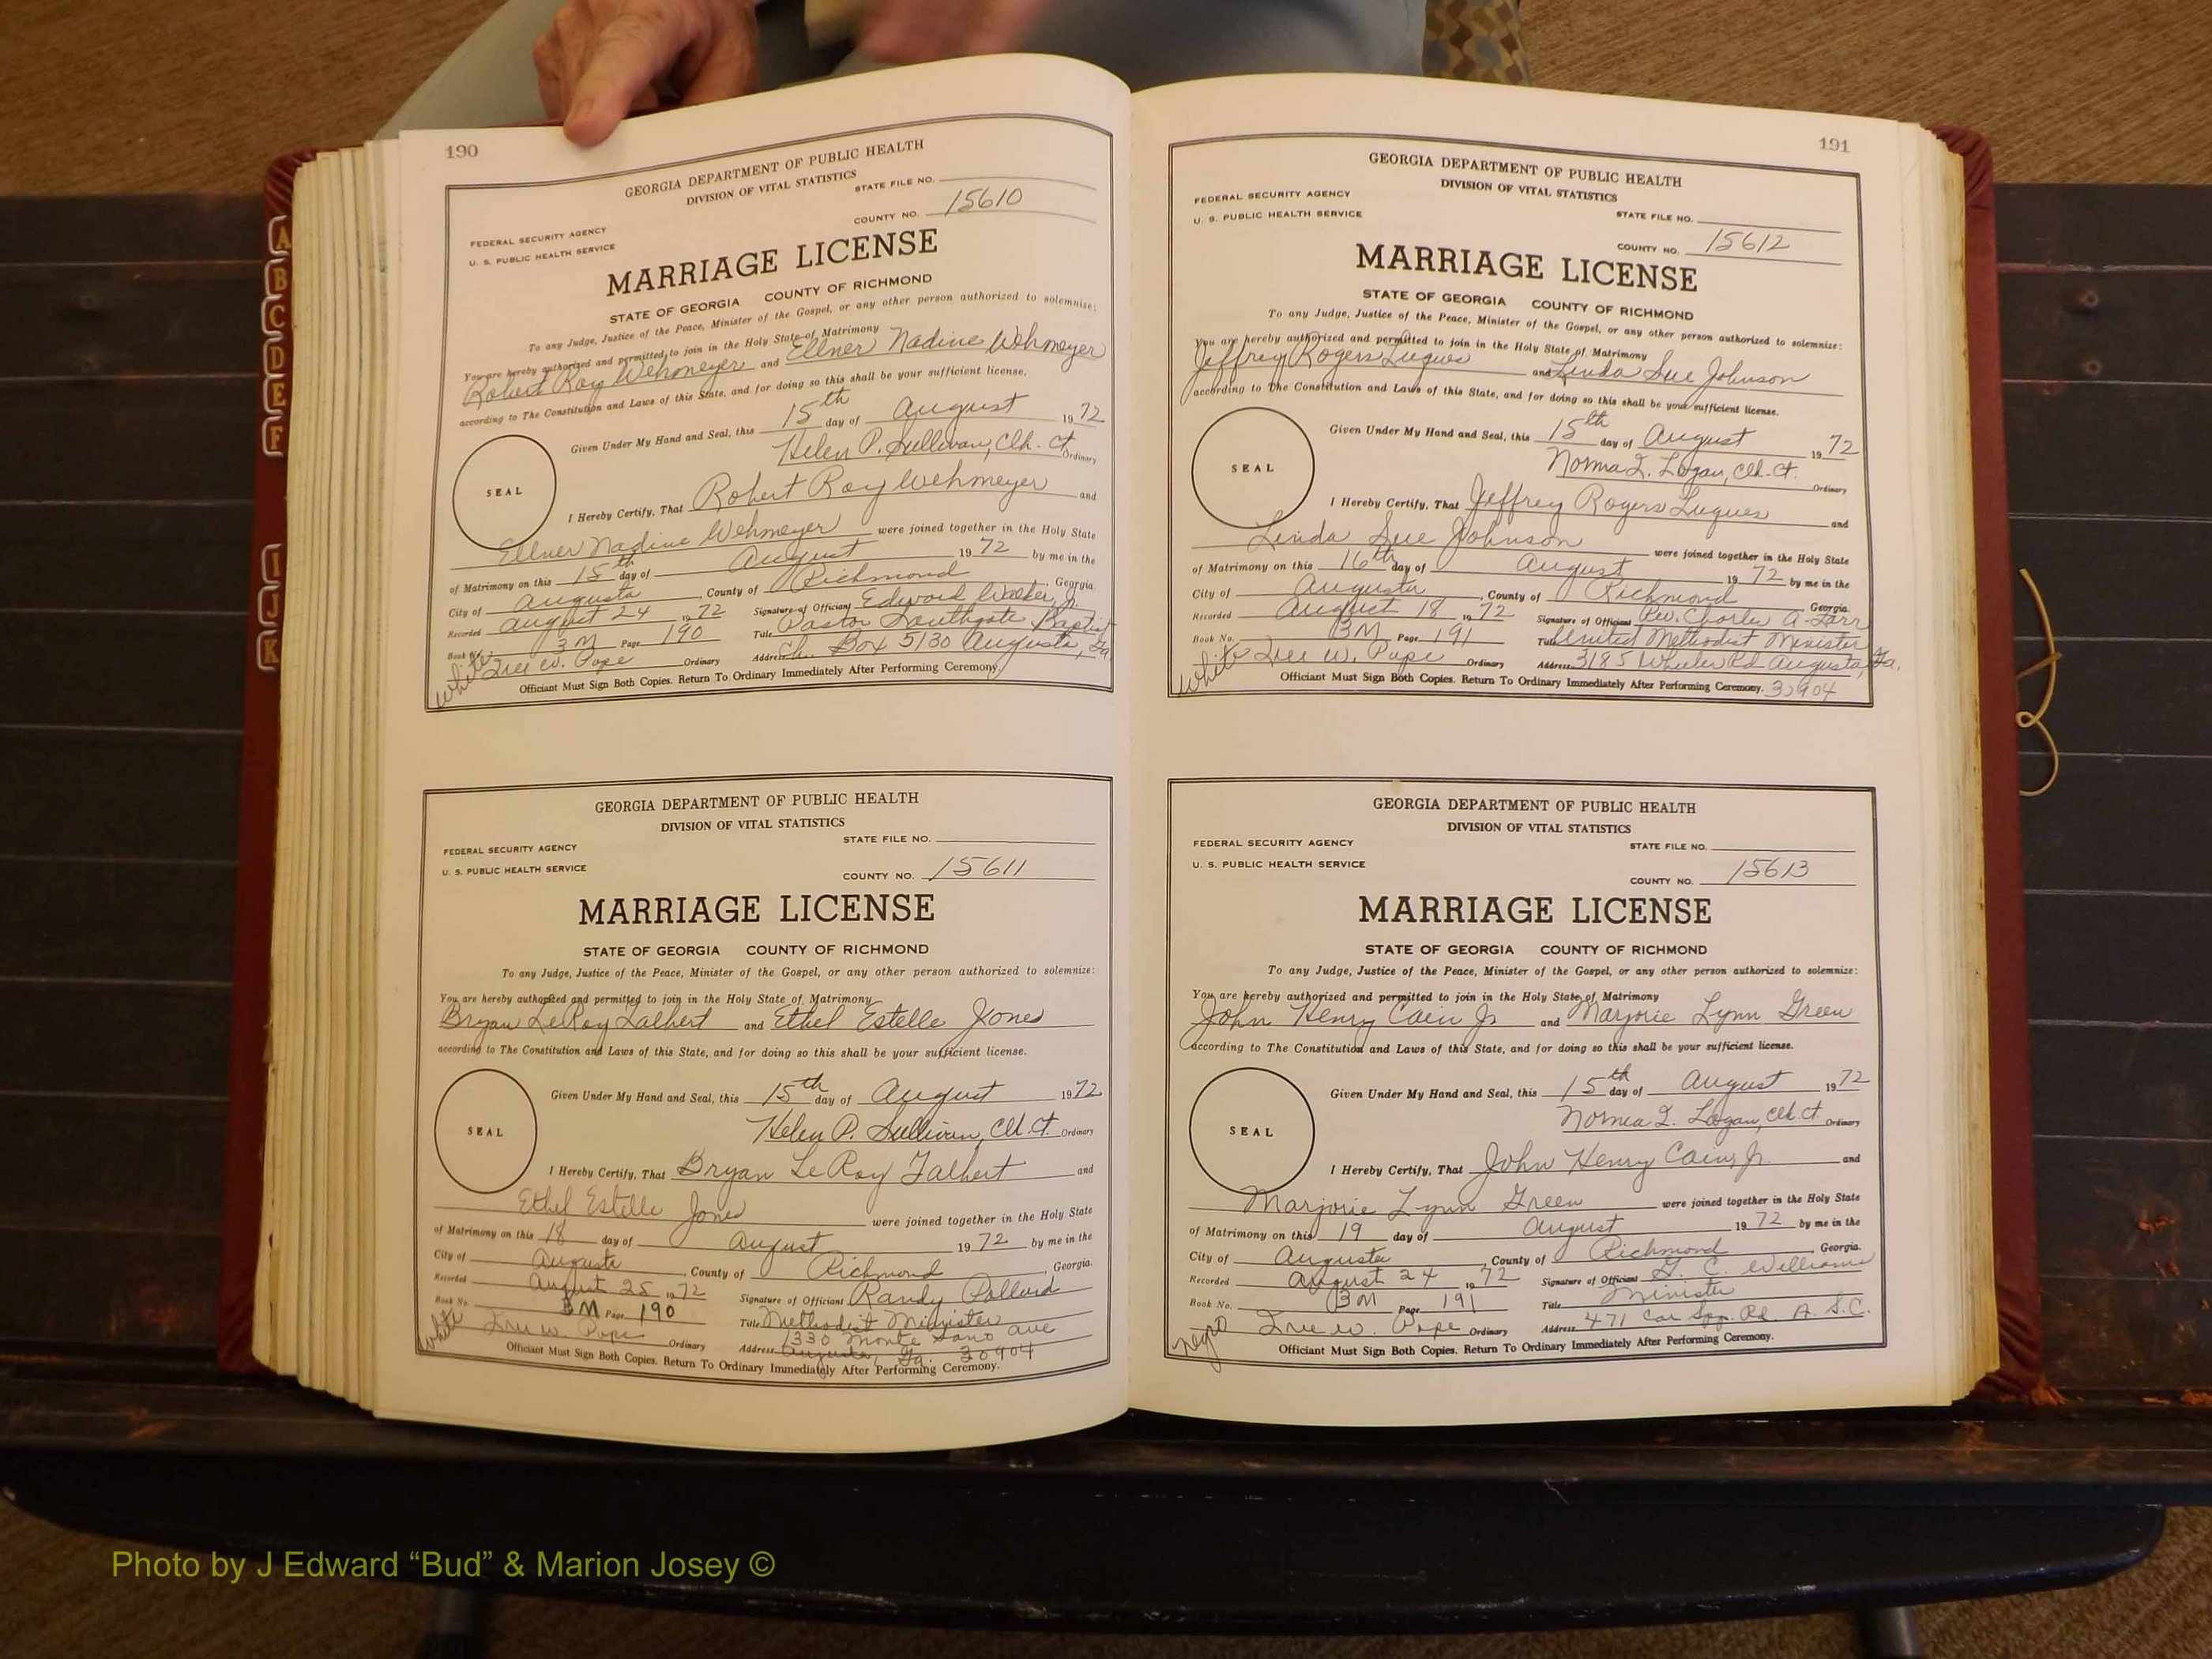 A
B
C
D
E
F
I
J
K
190
GEORGIA DEPARTMENT OF PUBLIC HEALTH
DIVISION OF VITAL STATISTICS
STATE FILE NO.
COUNTY NO. 15610
FEDERAL SECURITY AGENCY
U. S. PUBLIC HEALTH SERVICE
MARRIAGE LICENSE
STATE OF GEORGIA COUNTY OF RICHMOND
To any Judge, Justice of the Peace, Minister of the Gospel, or any other person authorized to solemnize:
You are hereby authorized and permitted to join in the Holy State of Matrimony
Robert Roy Wehmeyer and Ellner Nadine Wehmeyer
according to The Constitution and Laws of this State, and for doing so this shall be your sufficient license.
Given Under My Hand and Seal, this 15th day of August 1972
Helen P. Sullivan, Clk. Ct. Ordinary
SEAL
I Hereby Certify, That Robert Roy Wehmeyer and
Ellner Nadine Wehmeyer were joined together in the Holy State
of Matrimony on this 15th day of August 1972 by me in the
City of Augusta, County of Richmond, Georgia.
Recorded August 24 1972 Signature of Officiant Edward Walker, Jr.
Book No. 3M Page 190 Title Pastor Southgate Baptist
White Iree W. Pope Ordinary Address Ch. Box 5130 Augusta, Ga.
Officiant Must Sign Both Copies. Return To Ordinary Immediately After Performing Ceremony.
GEORGIA DEPARTMENT OF PUBLIC HEALTH
DIVISION OF VITAL STATISTICS
STATE FILE NO.
FEDERAL SECURITY AGENCY
U. S. PUBLIC HEALTH SERVICE
COUNTY NO. 15611
MARRIAGE LICENSE
STATE OF GEORGIA COUNTY OF RICHMOND
To any Judge, Justice of the Peace, Minister of the Gospel, or any other person authorized to solemnize:
You are hereby authorized and permitted to join in the Holy State of Matrimony
Bryan LeRoy Talbert and Ethel Estelle Jones
according to The Constitution and Laws of this State, and for doing so this shall be your sufficient license.
Given Under My Hand and Seal, this 15th day of August 1972
Helen P. Sullivan, Clk. Ct. Ordinary
SEAL
I Hereby Certify, That Bryan LeRoy Talbert and
Ethel Estelle Jones were joined together in the Holy State
of Matrimony on this 18 day of August 1972 by me in the
City of Augusta, County of Richmond, Georgia.
Recorded August 25 1972 Signature of Officiant Randy Pollard
Book No. 3M Page 190 Title Methodist Minister
1330 Monte Sano Ave
White Iree W. Pope Ordinary Address Augusta, Ga. 30904
Officiant Must Sign Both Copies. Return To Ordinary Immediately After Performing Ceremony.
191
GEORGIA DEPARTMENT OF PUBLIC HEALTH
DIVISION OF VITAL STATISTICS
FEDERAL SECURITY AGENCY
U. S. PUBLIC HEALTH SERVICE
STATE FILE NO.
COUNTY NO. 15612
MARRIAGE LICENSE
STATE OF GEORGIA COUNTY OF RICHMOND
To any Judge, Justice of the Peace, Minister of the Gospel, or any other person authorized to solemnize:
You are hereby authorized and permitted to join in the Holy State of Matrimony
Jeffrey Rogers Lugues and Linda Sue Johnson
according to The Constitution and Laws of this State, and for doing so this shall be your sufficient license.
Given Under My Hand and Seal, this 15th day of August 1972
Norma L. Logan, Clk. Ct. Ordinary
SEAL
I Hereby Certify, That Jeffrey Rogers Lugues and
Linda Sue Johnson were joined together in the Holy State
of Matrimony on this 16th day of August 1972 by me in the
City of Augusta, County of Richmond Georgia.
Recorded August 18 1972 Signature of Officiant Rev. Charles A.
Book No. 3M Page 191 Title United Methodist Minister
White Iree W. Pope Ordinary Address 3185 Wheeler Rd Augusta, Ga.
Officiant Must Sign Both Copies. Return To Ordinary Immediately After Performing Ceremony. 30904
GEORGIA DEPARTMENT OF PUBLIC HEALTH
DIVISION OF VITAL STATISTICS
FEDERAL SECURITY AGENCY
STATE FILE NO.
U. S. PUBLIC HEALTH SERVICE
COUNTY NO. 15613
MARRIAGE LICENSE
STATE OF GEORGIA COUNTY OF RICHMOND
To any Judge, Justice of the Peace, Minister of the Gospel, or any other person authorized to solemnize:
You are hereby authorized and permitted to join in the Holy State of Matrimony
John Henry Cain Jr and Marjorie Lynn Green
according to The Constitution and Laws of this State, and for doing so this shall be your sufficient license.
Given Under My Hand and Seal, this 15th day of August 1972
Norma L. Logan, Clk. Ct. Ordinary
SEAL
I Hereby Certify, That John Henry Cain, Jr. and
Marjorie Lynn Green were joined together in the Holy State
of Matrimony on this 19 day of August 1972 by me in the
City of Augusta, County of Richmond, Georgia.
Recorded August 24 1972 Signature of Officiant G. C. Williams
Book No. 3M Page 191 Title Minister
negro Iree W. Pope Ordinary Address 471 Car Spg. Rd. A. S.C.
Officiant Must Sign Both Copies. Return To Ordinary Immediately After Performing Ceremony.
Photo by J Edward “Bud” & Marion Josey ©